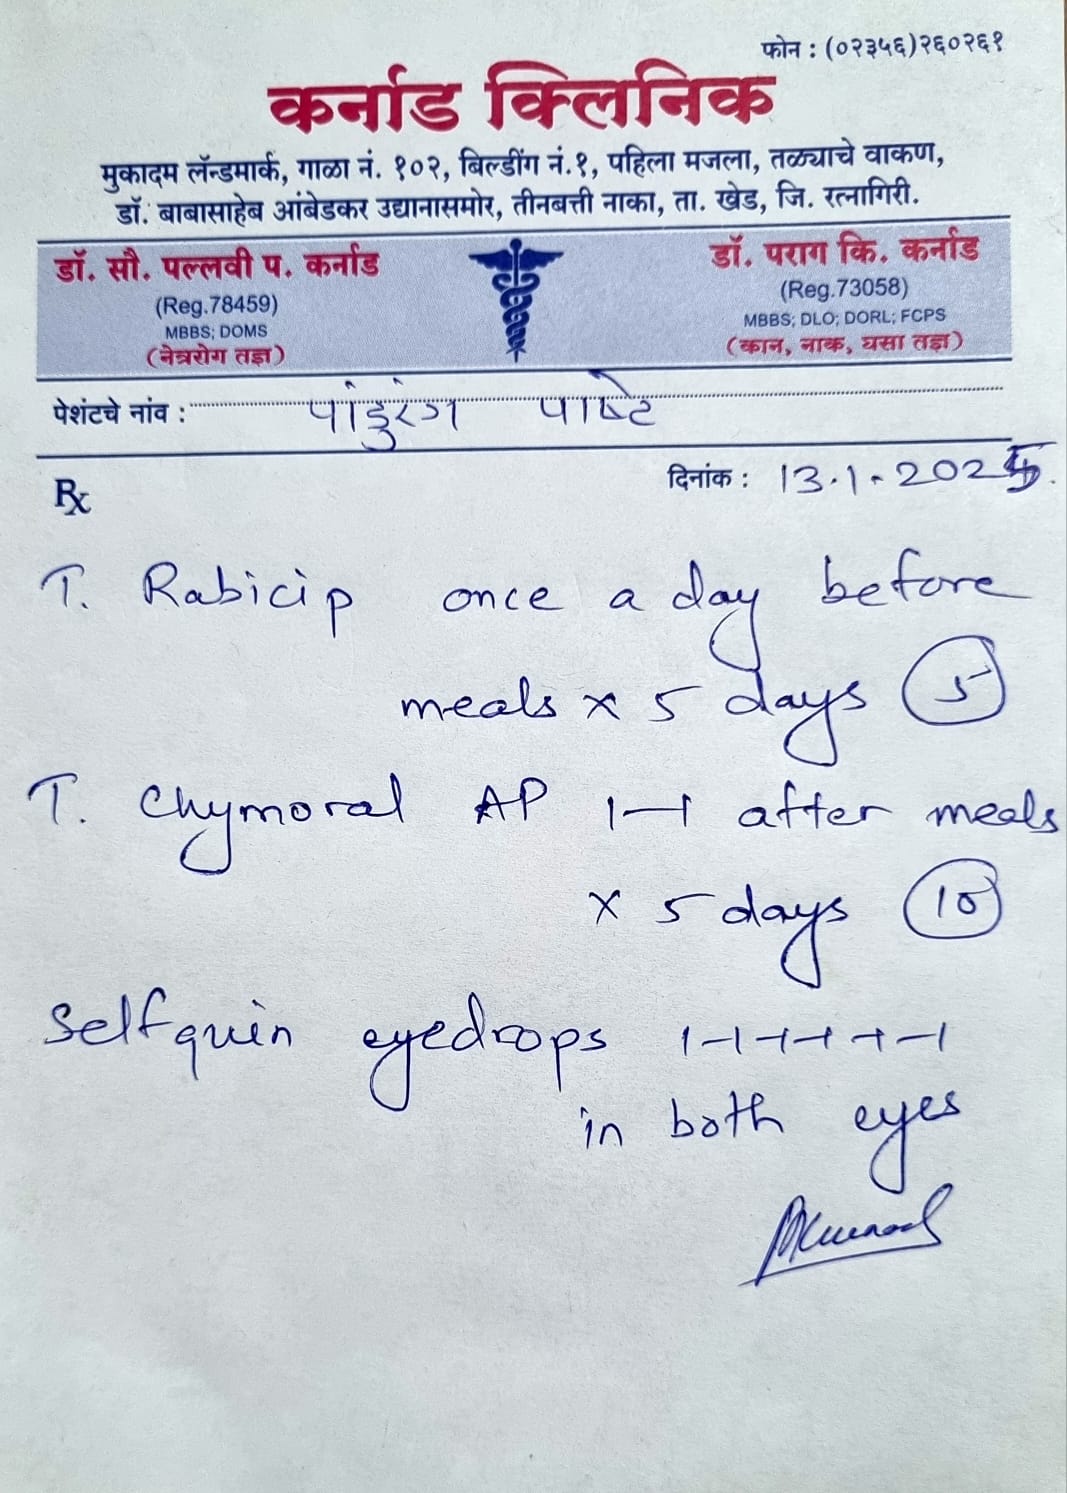 फोन : (०२३५६)२६०२६१
कर्नाड क्लिनिक
मुकादम लॅन्डमार्क, गाळा नं. १०२, बिल्डींग नं.१, पहिला मजला, तळ्याचे वाकण,
डॉ. बाबासाहेब आंबेडकर उद्यानासमोर, तीनबत्ती नाका, ता. खेड, जि. रत्नागिरी.
डॉ. सौ. पल्लवी प. कर्नाड
(Reg.78459)
MBBS; DOMS
(नेत्ररोग तज्ञ)
डॉ. पराग कि. कर्नाड
(Reg.73058)
MBBS; DLO; DORL; FCPS
(कान, नाक, घसा तज्ञ)
पेशंटचे नांव : पांडुरंग पाष्टे
दिनांक : 13.1.2025.
Rx
T. Rabicip once a day before
meals x 5 days 5
T. Chymoral AP 1-1 after meals
x 5 days 10
Selfquin eyedrops 1-1-1-1-1-1
in both eyes